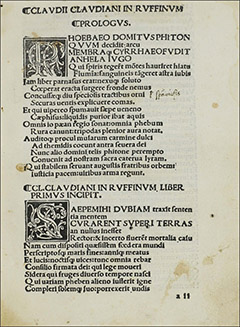 CLAVDII CLAVDIANI IN RVFFINVM
PROLOGVS.
PHOEBAEO DOMITVS PHITON
QVVM decidit arcu
MEMBRAQ CYRRHAEO FVDIT
ANHELA IVGO
Qui spiris tegeret
iam liber parnasus
Coeperat erecta surgere fronde nemus
Concussaeq; diu spaciosis tractibus orni
Securas uentis explicuere comas.
Et qui uipereo spumauit saepe ueneno
Caephisus liquidis purior ibat aquis
Omnis io paean regio sonat: omnia phebum
Rura canunt: tripodas plenior aura rotat,
Auditoq; procul musarum carmine dulci
Ad themidis coeunt antra seuera dei
Nunc alio domini telis phitone perempto
Conuenit ad nostram sacra caterua lyram.
Qui stabilem seruans augustis fratribus orbem
Iusticia pacem: uiribus arma regunt.
CL. CLAVDIANI IN RVFFINVM, LIBER
PRIMVS INCIPIT.
SAEPE MIHI DVBIAM traxit senten
tia mentem
CVRARENT SVPERI TERRAS
an nullus inesset
Rector: & incerto fluerēt mortalia casu
Nam cum disposti quaesissem foedera mundi
Perscriptosq; maris fines: annisq; meatus
Et lucis: noctisq; uices: tunc omnia rebar
Consilio firmata dei: qui lege moueri
Sidera: qui fruges diuerso tempore nasci
Qui uariam pheben alieno iusserit igne
Compleri solemq; suo: porrexerit undis
a ii